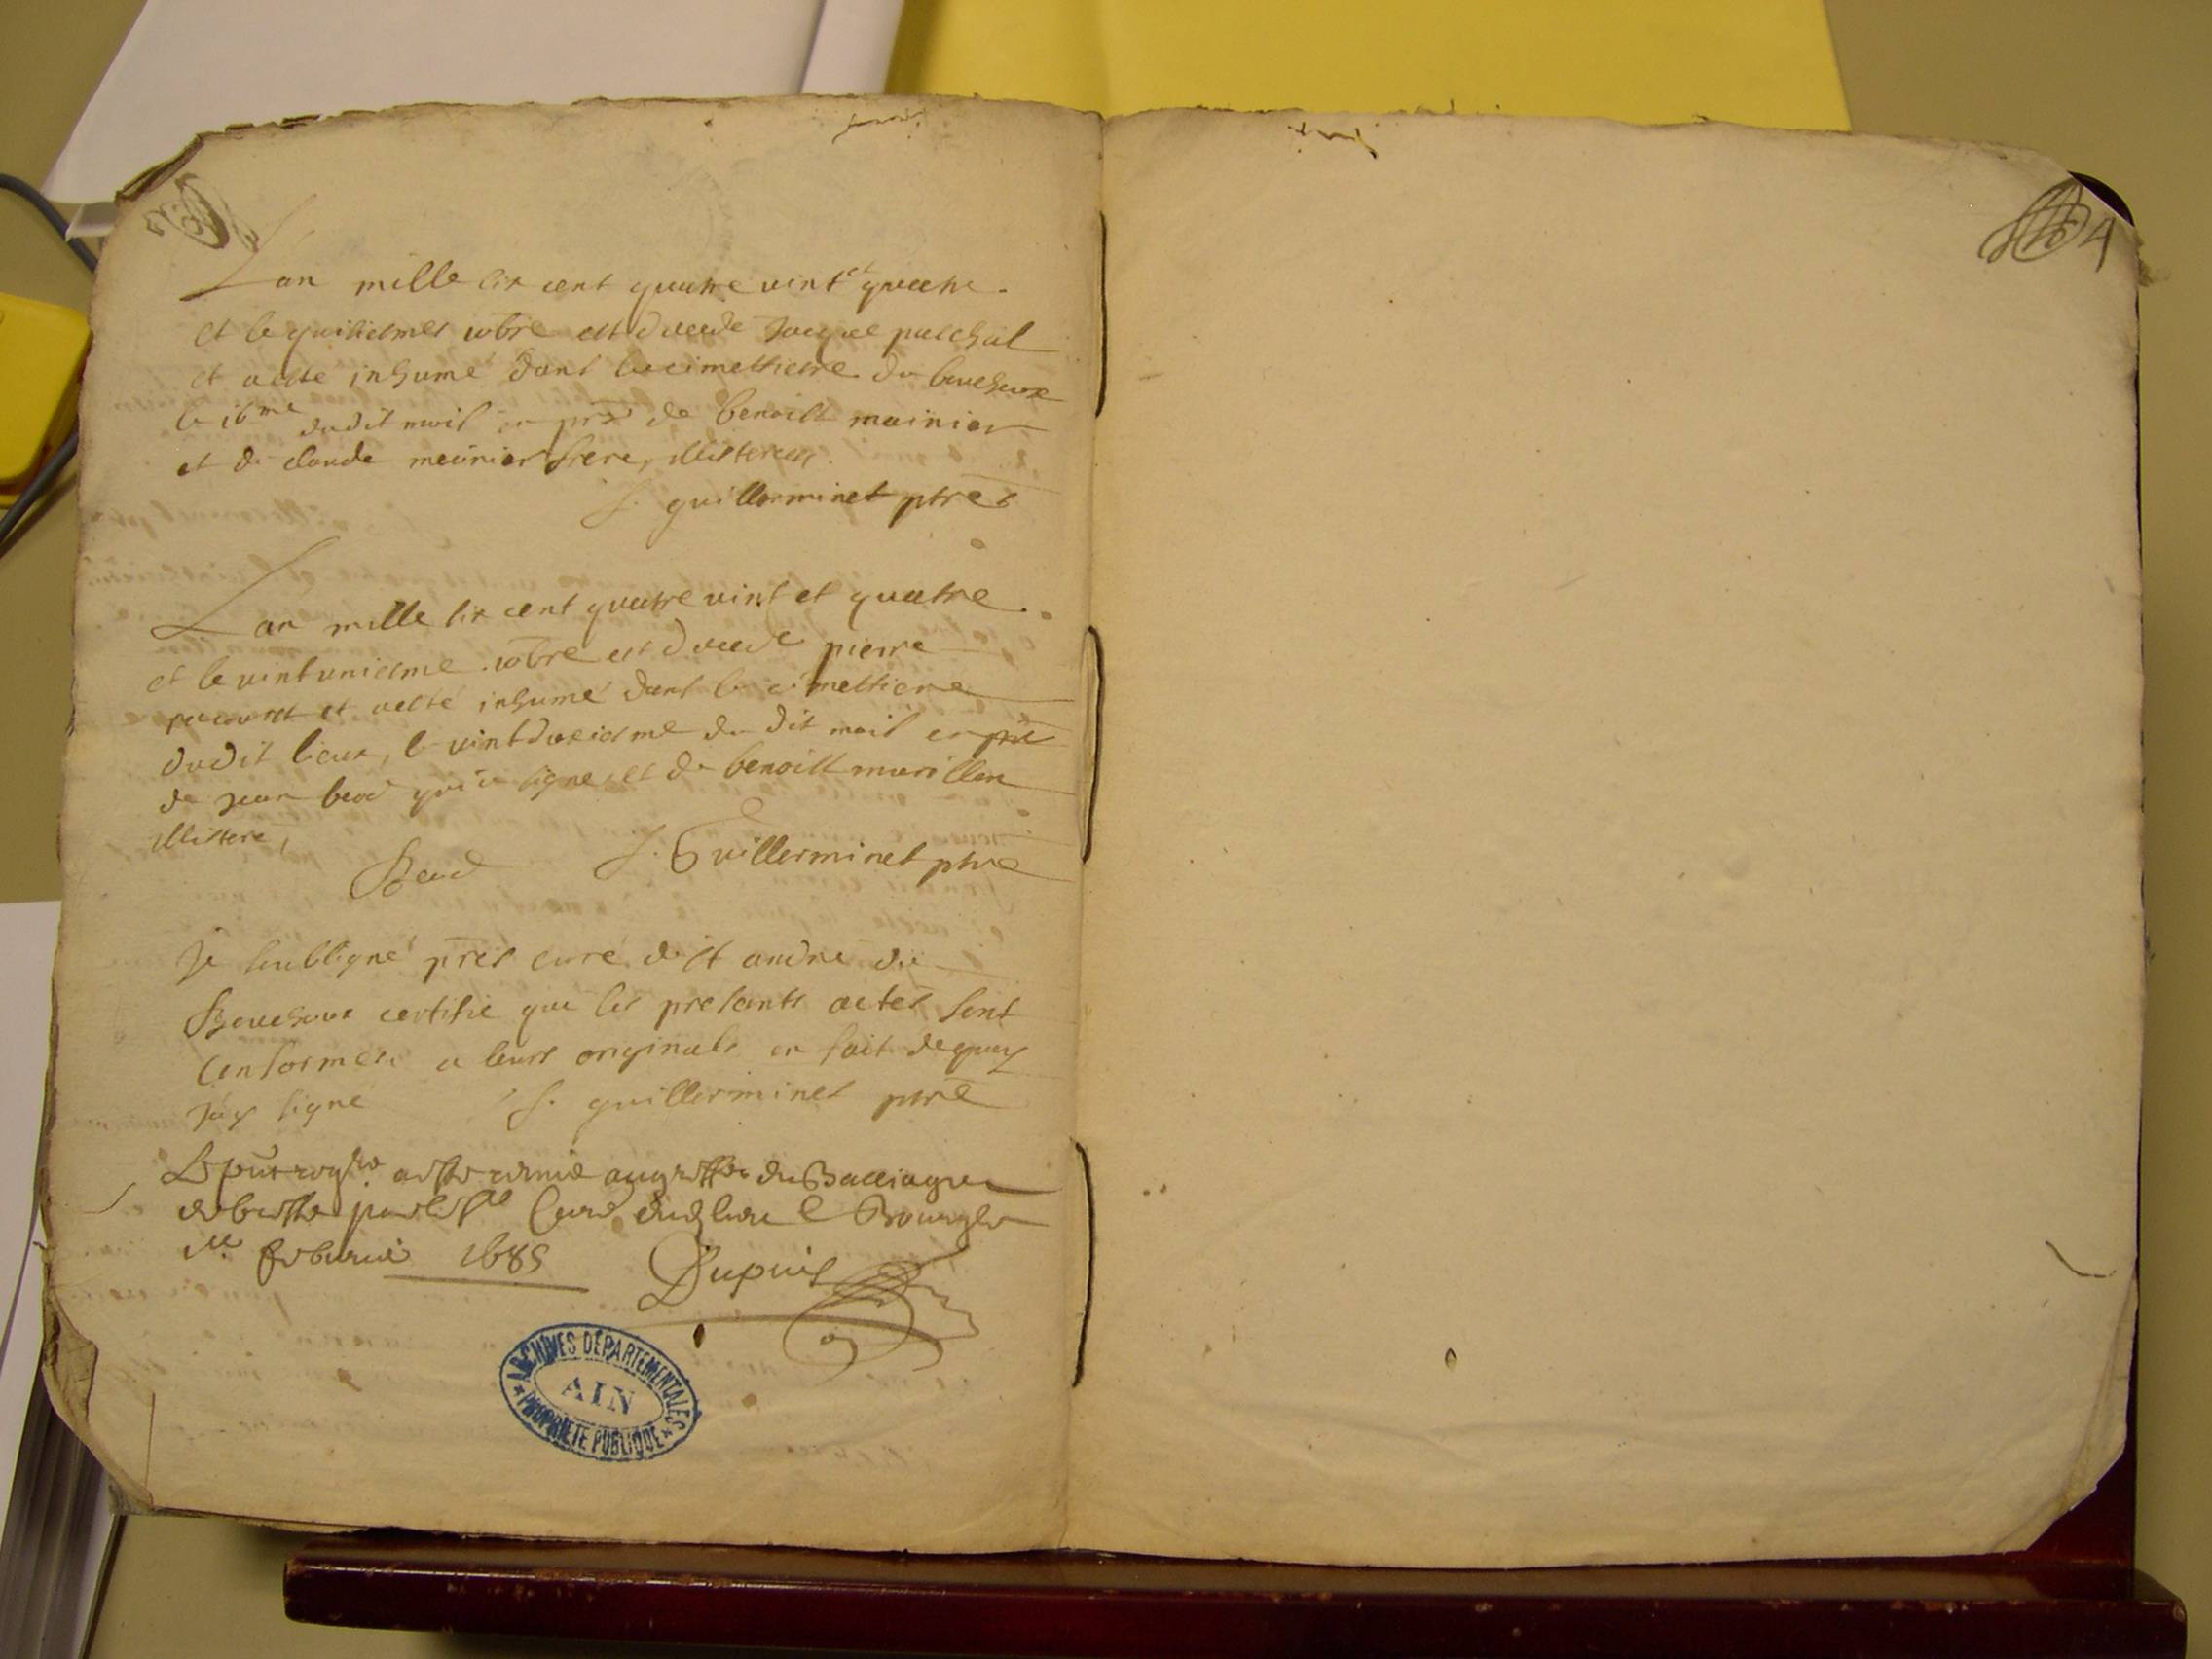 Lan mille six cent quatre vint et quatre.
et le quiziesmes xobre est decede Jacque paschal
et a esté inhumé dans le cimettiere du bouchoux
le 16me dudit mois en prs de benoist mainier
et de claude meunier frere, illisterers.
J. guillerminet ptres
Lan mille six cent quatre vint et quatre.
et le vintuniesme xobre est decede pierre
et a esté inhumé dans le cimettiere
dudit lieux, le vintdoxiesme du dit mois en pré
de jean beod qui a signe, et de benoist marillon
illistere,
Beod J. Guillerminet ptre
Je soubsigné pres curé de st andre du
Bouchoux certifie que les presants actes sont
conformes a leurs originals en fait de quoy
Jay signe J. guillerminet ptre
Le pnt regre a esté remis au greffe du Bailliage
de bresse par led sr Curé dud lieu a Bourg le
me febvrier 1685
Dupuis
4
ARCHIVES DÉPARTEMENTALES
AIN
* PROPRIÉTÉ PUBLIQUE *